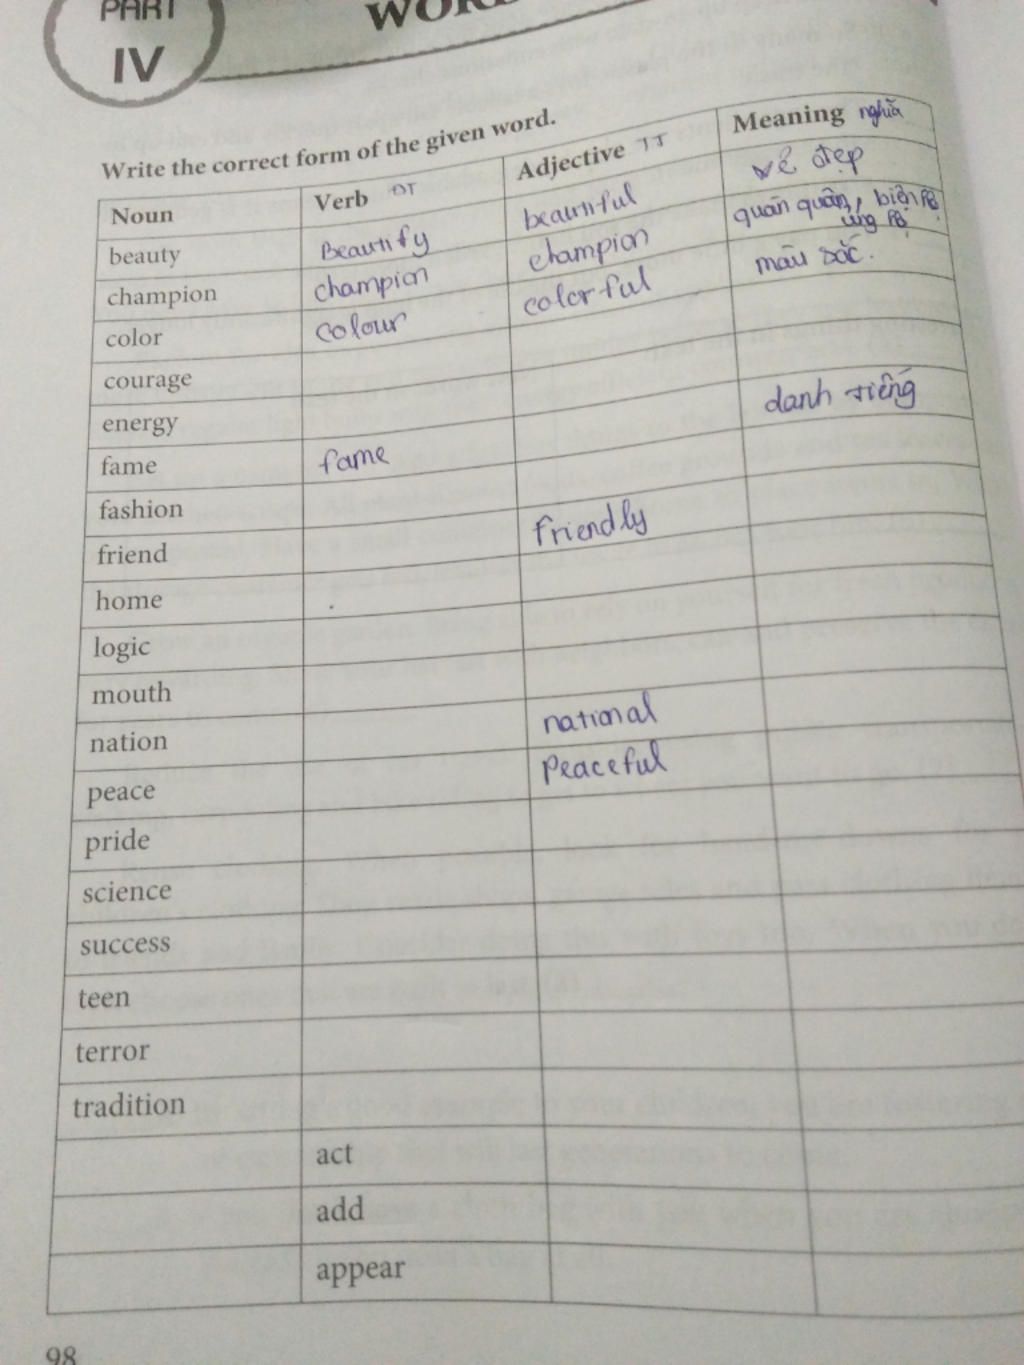 PART
IV
Write the correct form of the given word.
Noun Verb ĐT Adjective TT Meaning nghĩa
beauty Beautify beautiful vẻ đẹp
champion champion champion quán quân, biện hộ, ủng hộ
color colour colorful màu sắc.
courage
energy
fame fame danh tiếng
fashion
friend Friendly
home
logic
mouth
nation national
peace Peaceful
pride
science
success
teen
terror
tradition
act
add
appear
98